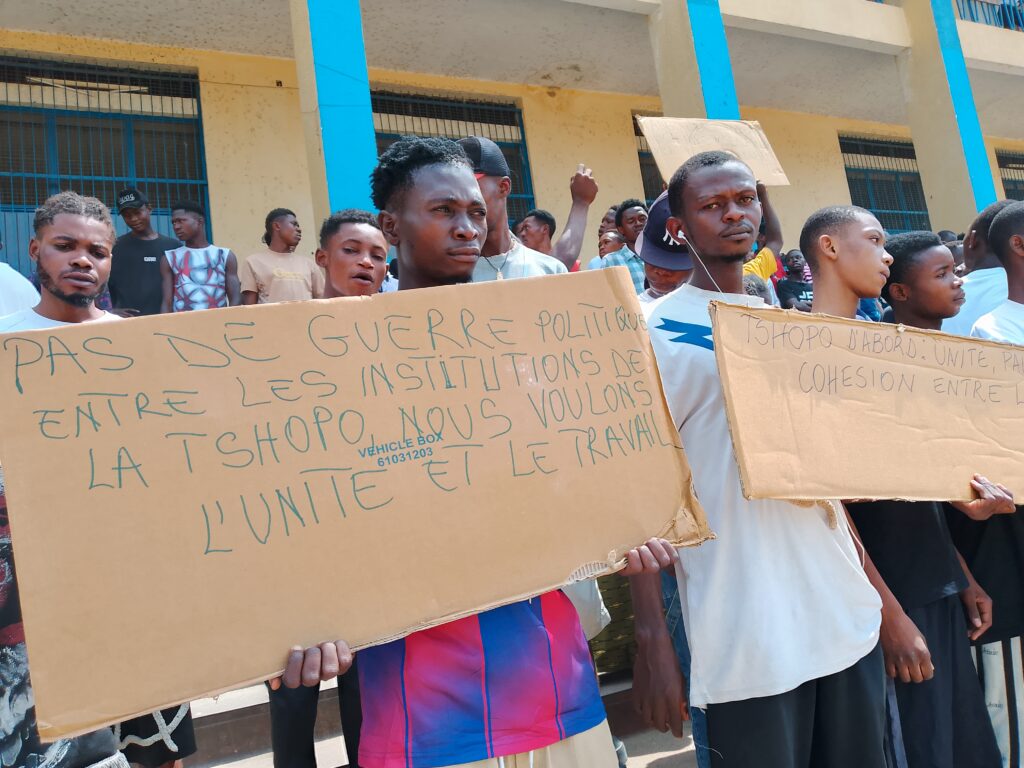 PAS DE GUERRE POLITIQUE
ENTRE LES INSTITUTIONS DE
LA TSHOPO NOUS VOULONS
L'UNITE ET LE TRAVAIL
VEHICLE BOX
61031203
TSHOPO D'ABORD: UNITE,
COHESION ENTRE